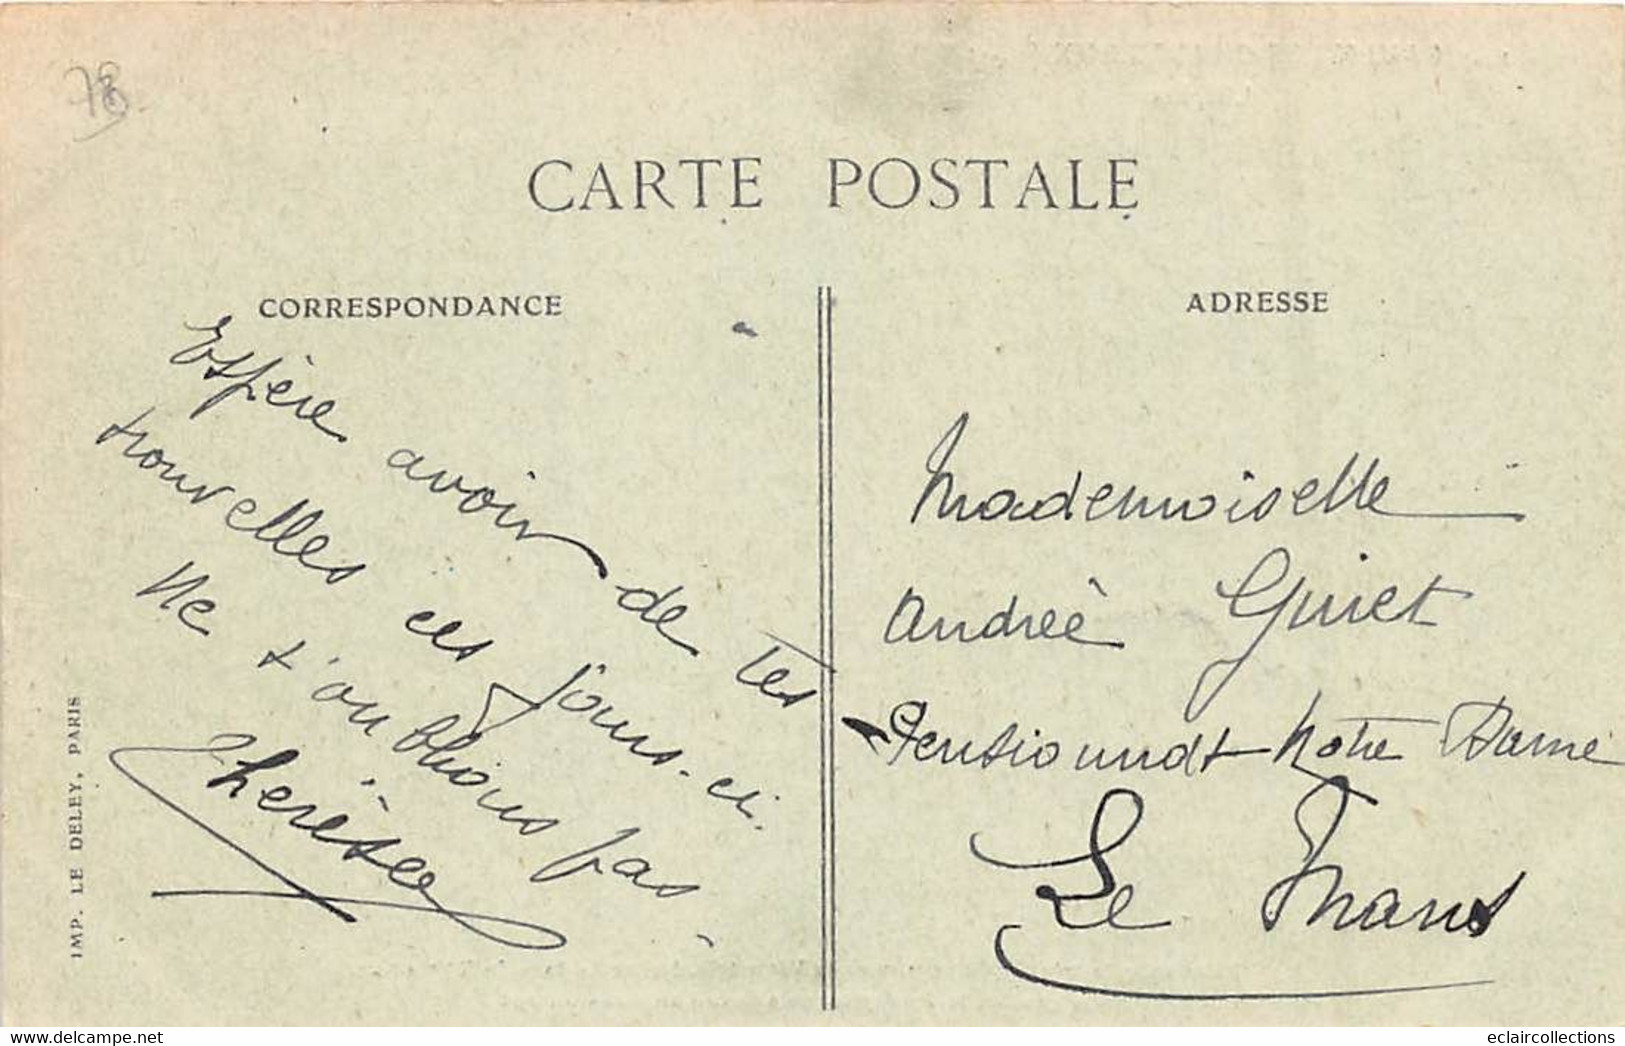 78
CARTE POSTALE
CORRESPONDANCE
Espère avoir de tes
nouvelles ces jours-ci.
Ne t'oublions pas.
Therèse
IMP. LE DELEY, PARIS
ADRESSE
Mademoiselle
Andrée Guiet
Pensionnat Notre Dame
Le Mans
www.delcampe.net
eclaircollections